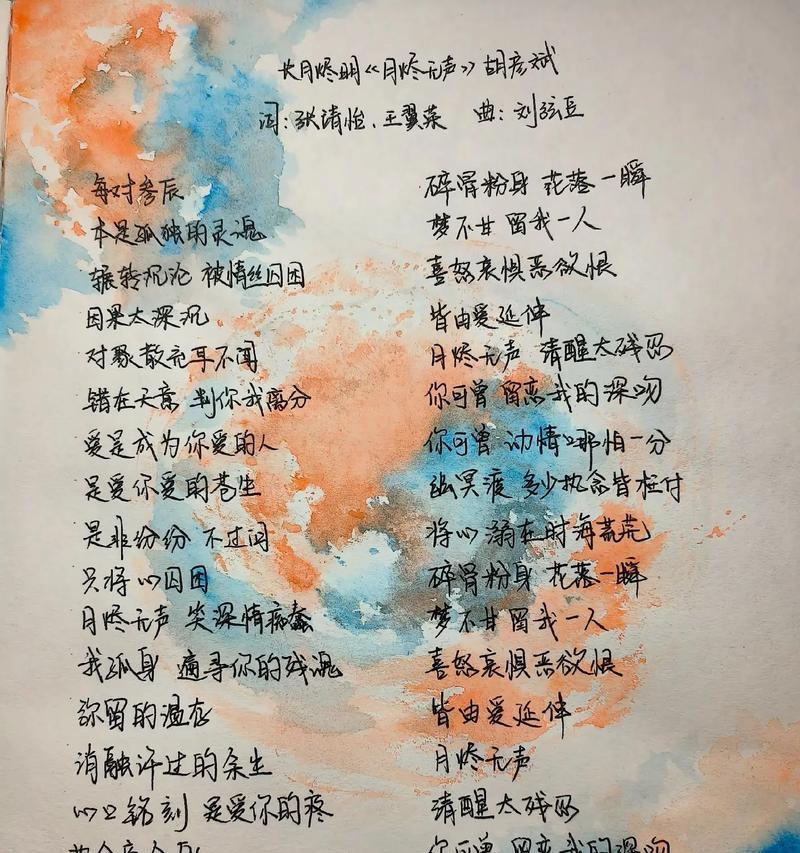 长月烬明《月烬无声》胡彦斌
词：张靖怡、王翼荣 曲：刘弦豆
每对参辰
本是孤独的灵魂
辗转沉沦 被情丝囚困
因果太深沉
对聚散充耳不闻
错在天意 判你我离分
爱是成为你爱的人
是爱你爱的苍生
是非纷纷 不过问
只将心囚困
月烬无声 笑深情痴蠢
我孤身 遍寻你的残魂
弥留的温存
消融许过的余生
心口铭刻 是爱你的疼
碎骨粉身 花落一瞬
梦不甘 留我一人
喜怒哀惧恶欲恨
皆由爱延伸
月烬无声 清醒太残忍
你可曾 留恋我的深吻
你可曾 动情哪怕一分
幽冥渡 多少执念皆枉付
将心 溺在时海荒芜
碎骨粉身 花落一瞬
梦不甘 留我一人
喜怒哀惧恶欲恨
皆由爱延伸
月烬无声
清醒太残忍
你可曾 留恋我的深吻